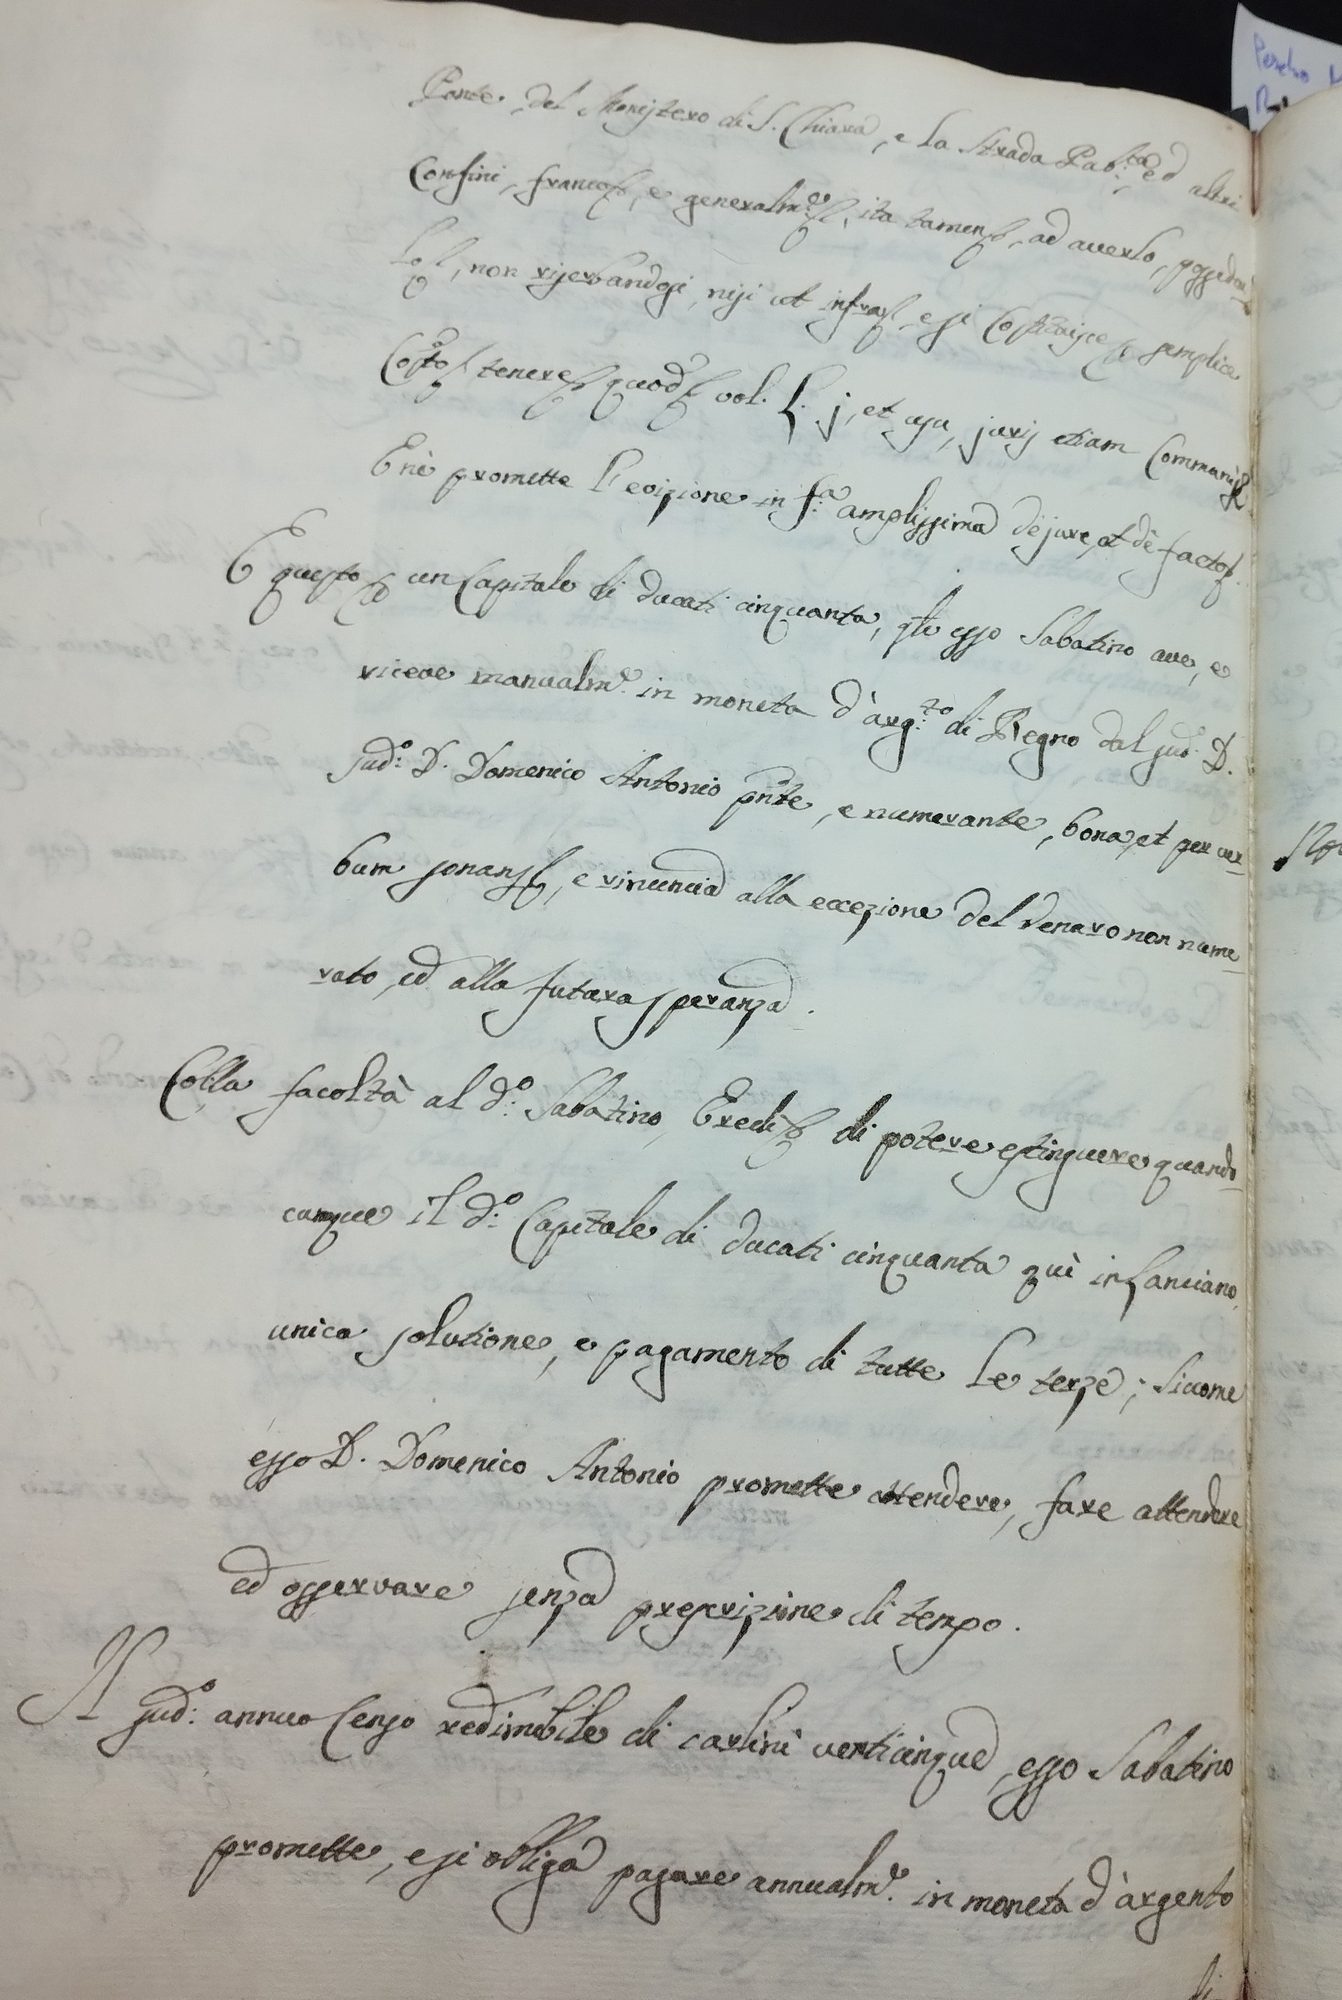 Ponte, del Monistero di S. Chiara, e la strada Pub.ca ed altri
Confini, franco, e generalm.e, ita tamen, ad averlo,
non riserbandosi, nisi ut infra, e si Costituisce semplice
tenere quod vol. et usu, juris etiam Communis
E ne promette l'evizione in f.a amplissima de jure, et de facto.
E questo un Capitale di ducati cinquanta, q.li esso Sabatino ave, e
riceve manualm.e in moneta d'arg.to di Regno dal sud. D.
sud.o D. Domenico Antonio p̃nte, e numerante, bona, et per ver-
bum sonans, e rinuncia alla eccezione del denaro non nume-
rato, ed alla futura speranza.
Colla facoltà al d.o Sabatino, Eredi di potere estinguere quando-
cunque il d.o Capitale di ducati cinquanta quì in Lanciano,
unica solutione, e pagamento di tutte le terze; siccome
esso D. Domenico Antonio promette attendere, fare attendere
ed osservare senza prescrizione di tempo.
Il sud.o annuo Censo redimibile di carlini venticinque, esso Sabatino
promette, e si obliga pagare annualm.e in moneta d'argento
di